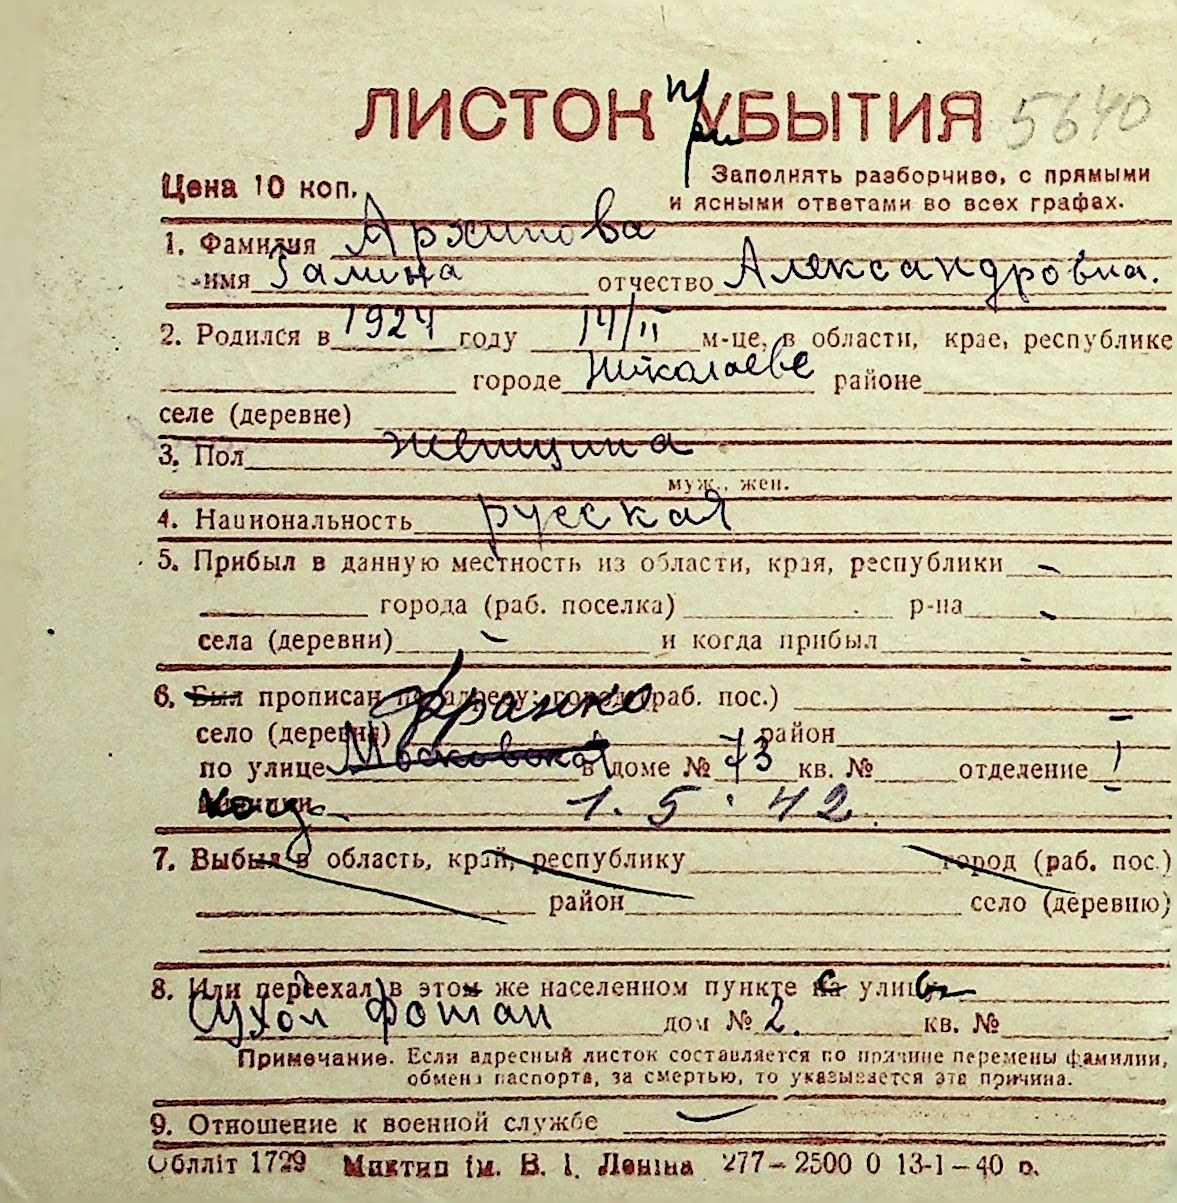 ЛИСТОК при УБЫТИЯ 5640
Цена 10 коп.
Заполнять разборчиво, с прямыми
и ясными ответами во всех графах.
1. Фамилия Архипова
имя Галина отчество Александровна.
2. Родился в 1924 году 14/II м-це, в области, крае, республике
городе Николаеве районе
селе (деревне)
3. Пол женщина
муж., жен.
4. Национальность русская
5. Прибыл в данную местность из области, края, республики –
города (раб. поселка) р-на –
села (деревни) – и когда прибыл
6. Был прописан по адресу: город (раб. пос.)
Франко
село (деревня) район
по улице Московской в доме № 73 кв. № отделение I
1.5.42.
7. Выбыл в область, край, республику город (раб. пос.)
район село (деревню)
8. Или переехал в этом же населенном пункте с улицы
Сухой Фонтан дом № 2. кв. №
Примечание. Если адресный листок составляется по причине перемены фамилии,
обмена паспорта, за смертью, то указывается эта причина.
9. Отношение к военной службе –
Облліт 1729 Миктип ім. В. І. Леніна 277–2500 0 13-1–40 р.